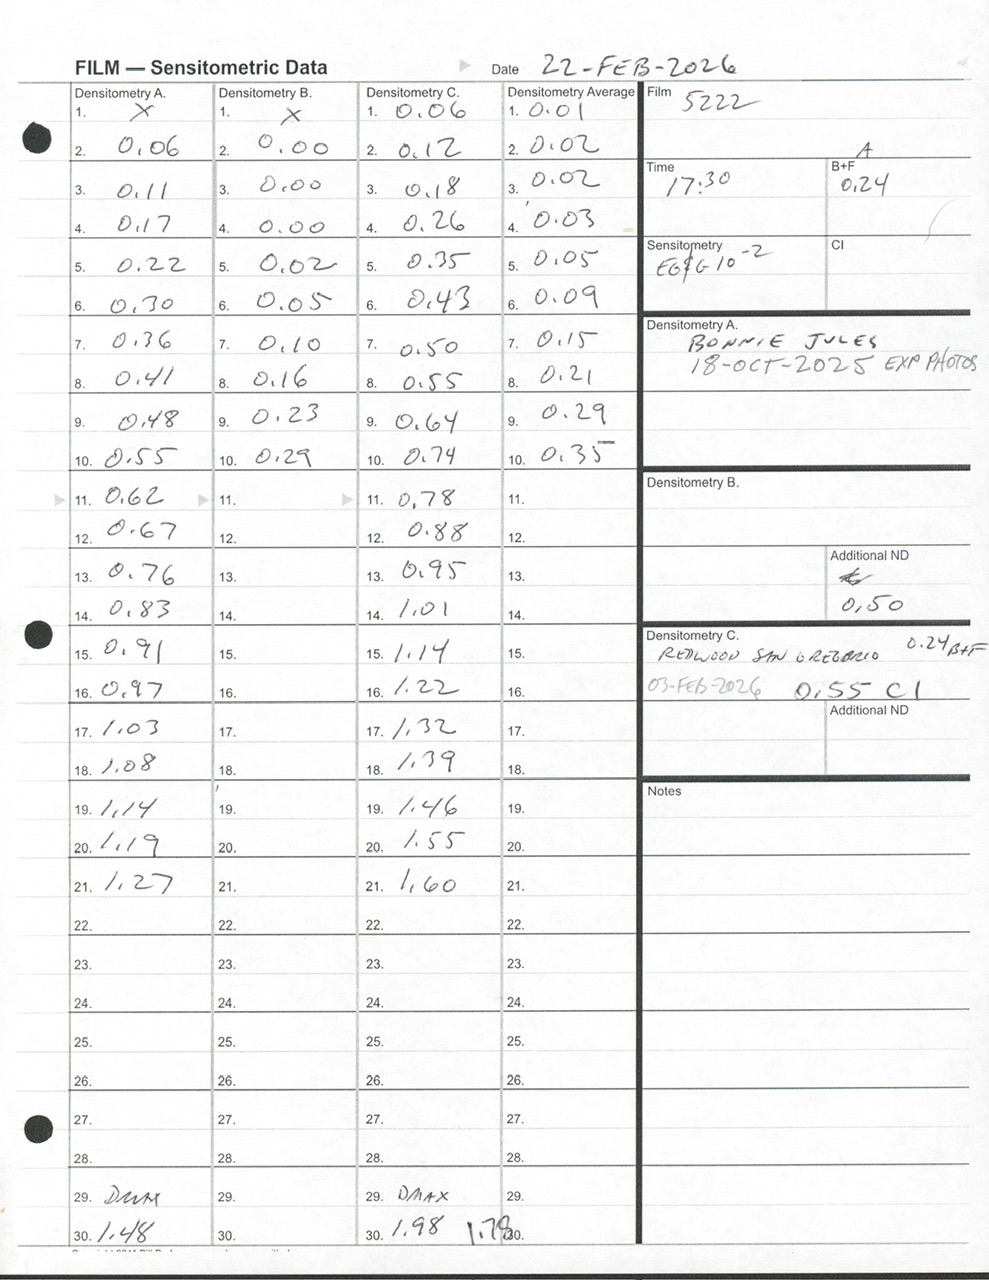 FILM — Sensitometric Data
Date 22-FEB-2026
Densitometry A. Densitometry B. Densitometry C. Densitometry Average Film 5222
1. X 1. X 1. 0.06 1. 0.01
2. 0.06 2. 0.00 2. 0.12 2. 0.02
A
Time 17:30 B+F 0.24
3. 0.11 3. 0.00 3. 0.18 3. 0.02
4. 0.17 4. 0.00 4. 0.26 4. 0.03
Sensitometry EG&G 10-2 CI
5. 0.22 5. 0.02 5. 0.35 5. 0.05
6. 0.30 6. 0.05 6. 0.43 6. 0.09
Densitometry A.
BONNIE JULES
18-OCT-2025 EXP PHOTOS
7. 0.36 7. 0.10 7. 0.50 7. 0.15
8. 0.41 8. 0.16 8. 0.55 8. 0.21
9. 0.48 9. 0.23 9. 0.64 9. 0.29
10. 0.55 10. 0.29 10. 0.74 10. 0.35
Densitometry B.
11. 0.62 11. 11. 0.78 11.
12. 0.67 12. 12. 0.88 12.
Additional ND
0.50
13. 0.76 13. 13. 0.95 13.
14. 0.83 14. 14. 1.01 14.
Densitometry C.
REDWOOD SAN GREGORIO 0.24 B+F
03-FEB-2026 0.55 CI
15. 0.91 15. 15. 1.14 15.
16. 0.97 16. 16. 1.22 16.
Additional ND
17. 1.03 17. 17. 1.32 17.
18. 1.08 18. 18. 1.39 18.
Notes
19. 1.14 19. 19. 1.46 19.
20. 1.19 20. 20. 1.55 20.
21. 1.27 21. 21. 1.60 21.
22. 22. 22. 22.
23. 23. 23. 23.
24. 24. 24. 24.
25. 25. 25. 25.
26. 26. 26. 26.
27. 27. 27. 27.
28. 28. 28. 28.
29. DMAX 29. 29. DMAX 29.
30. 1.48 30. 30. 1.98 1.78 30.